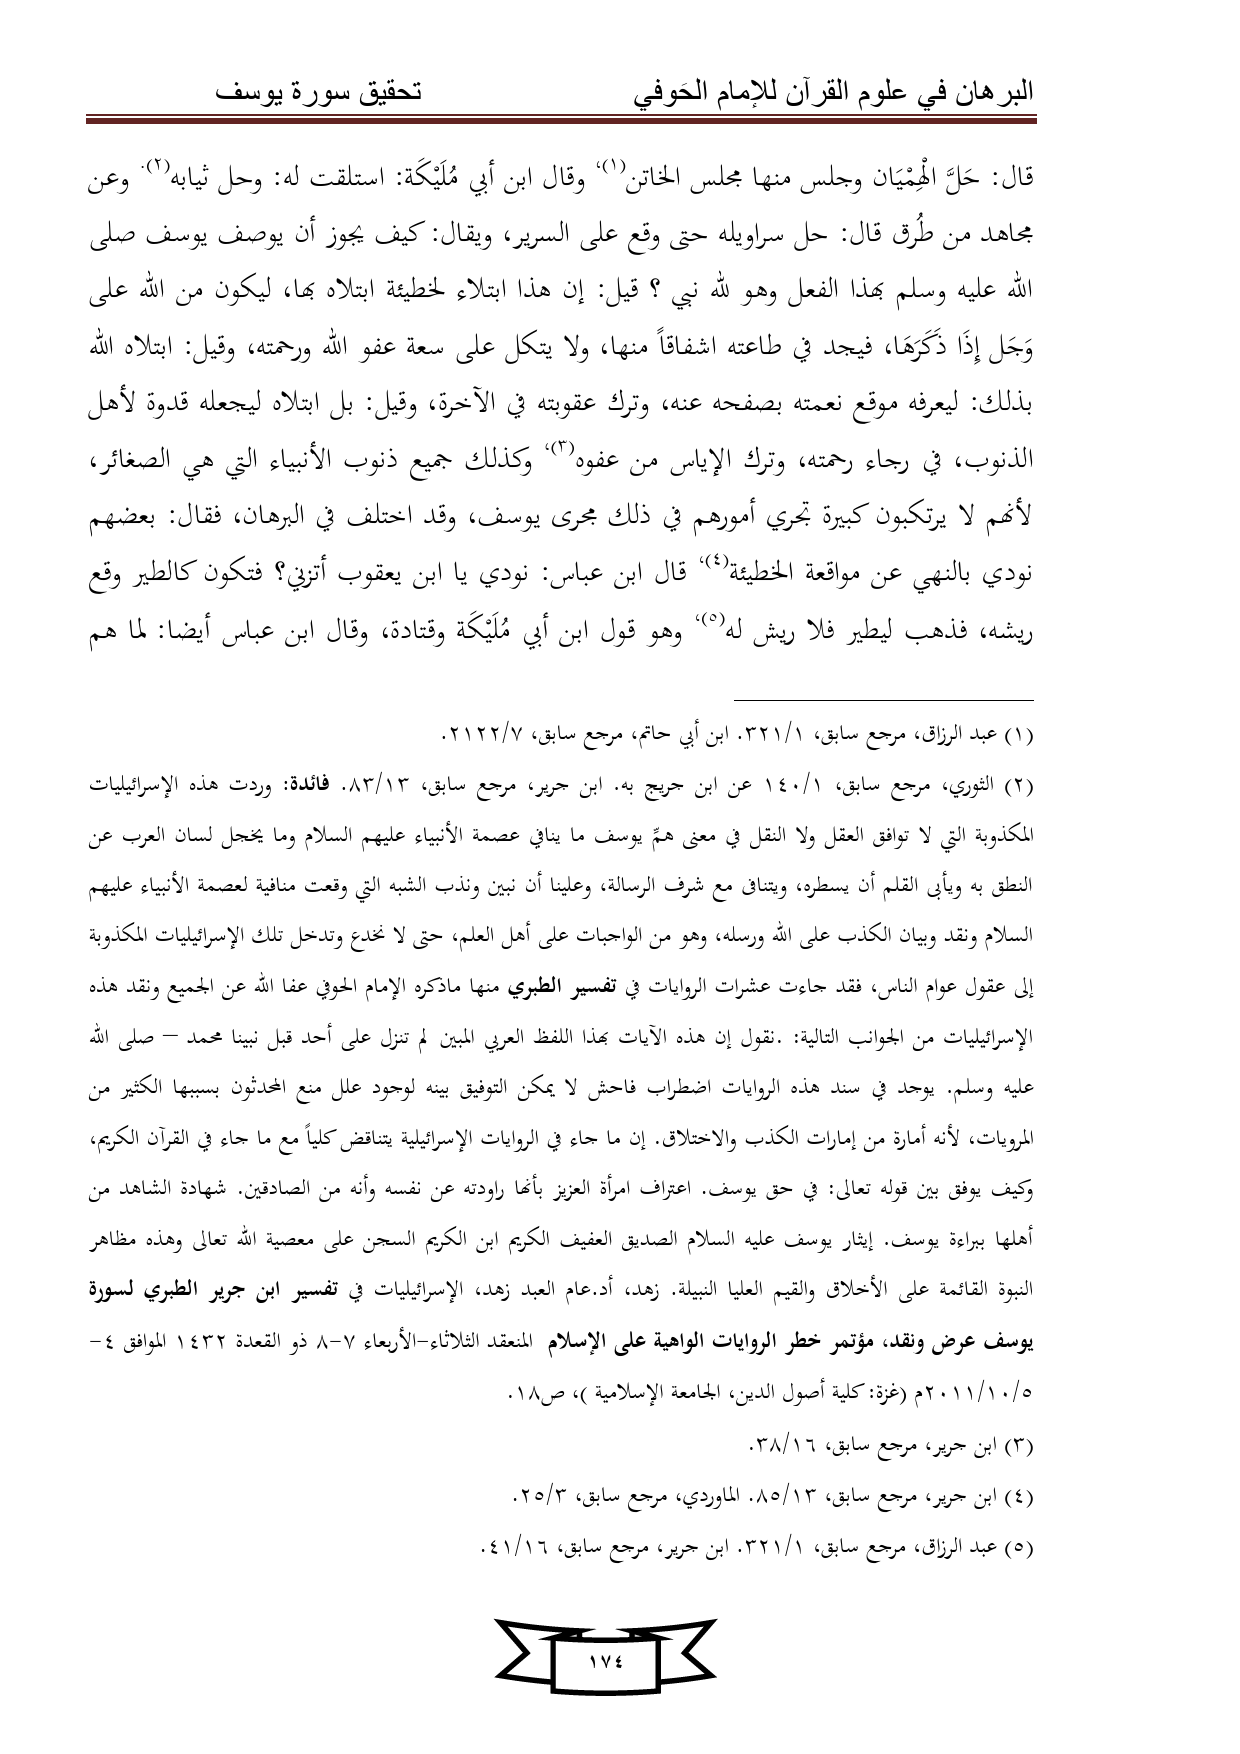 البرهان في علوم القرآن للإمام الحَوفي تحقيق سورة يوسف
قال: حَلَّ الْهِمْيَان وجلس منها مجلس الخاتن(١)، وقال ابن أبي مُلَيْكَة: استلقت له: وحل ثيابه(٢). وعن
مجاهد من طُرق قال: حل سراويله حتى وقع على السرير، ويقال: كيف يجوز أن يوصف يوسف صلى
الله عليه وسلم بهذا الفعل وهو لله نبي ؟ قيل: إن هذا ابتلاء لخطيئة ابتلاه بها، ليكون من الله على
وَجَل إِذَا ذَكَرَهَا، فيجد في طاعته اشفاقاً منها، ولا يتكل على سعة عفو الله ورحمته، وقيل: ابتلاه الله
بذلك: ليعرفه موقع نعمته بصفحه عنه، وترك عقوبته في الآخرة، وقيل: بل ابتلاه ليجعله قدوة لأهل
الذنوب، في رجاء رحمته، وترك الإياس من عفوه(٣)، وكذلك جميع ذنوب الأنبياء التي هي الصغائر،
لأنهم لا يرتكبون كبيرة تجري أمورهم في ذلك مجرى يوسف، وقد اختلف في البرهان، فقال: بعضهم
نودي بالنهي عن مواقعة الخطيئة(٤)، قال ابن عباس: نودي يا ابن يعقوب أتزني؟ فتكون كالطير وقع
ريشه، فذهب ليطير فلا ريش له(٥)، وهو قول ابن أبي مُلَيْكَة وقتادة، وقال ابن عباس أيضا: لما هم
(١) عبد الرزاق، مرجع سابق، ٣٢١/١. ابن أبي حاتم، مرجع سابق، ٢١٢٢/٧.
(٢) الثوري، مرجع سابق، ١٤٠/١ عن ابن جريج به. ابن جرير، مرجع سابق، ٨٣/١٣. فائدة: وردت هذه الإسرائيليات
المكذوبة التي لا توافق العقل ولا النقل في معنى همِّ يوسف ما ينافي عصمة الأنبياء عليهم السلام وما يخجل لسان العرب عن
النطق به ويأبى القلم أن يسطره، ويتنافى مع شرف الرسالة، وعلينا أن نبين ونذب الشبه التي وقعت منافية لعصمة الأنبياء عليهم
السلام ونقد وبيان الكذب على الله ورسله، وهو من الواجبات على أهل العلم، حتى لا نخدع وتدخل تلك الإسرائيليات المكذوبة
إلى عقول عوام الناس، فقد جاءت عشرات الروايات في تفسير الطبري منها ماذكره الإمام الحوفي عفا الله عن الجميع ونقد هذه
الإسرائيليات من الجوانب التالية: .نقول إن هذه الآيات بهذا اللفظ العربي المبين لم تنزل على أحد قبل نبينا محمد – صلى الله
عليه وسلم. يوجد في سند هذه الروايات اضطراب فاحش لا يمكن التوفيق بينه لوجود علل منع المحدثون بسببها الكثير من
المرويات، لأنه أمارة من إمارات الكذب والاختلاق. إن ما جاء في الروايات الإسرائيلية يتناقض كلياً مع ما جاء في القرآن الكريم،
وكيف يوفق بين قوله تعالى: في حق يوسف. اعتراف امرأة العزيز بأنها راودته عن نفسه وأنه من الصادقين. شهادة الشاهد من
أهلها ببراءة يوسف. إيثار يوسف عليه السلام الصديق العفيف الكريم ابن الكريم السجن على معصية الله تعالى وهذه مظاهر
النبوة القائمة على الأخلاق والقيم العليا النبيلة. زهد، أد.عام العبد زهد، الإسرائيليات في تفسير ابن جرير الطبري لسورة
يوسف عرض ونقد، مؤتمر خطر الروايات الواهية على الإسلام المنعقد الثلاثاء-الأربعاء ٧-٨ ذو القعدة ١٤٣٢ الموافق ٤-
٢٠١١/١٠/٥م (غزة: كلية أصول الدين، الجامعة الإسلامية )، ص١٨.
(٣) ابن جرير، مرجع سابق، ٣٨/١٦.
(٤) ابن جرير، مرجع سابق، ٨٥/١٣. الماوردي، مرجع سابق، ٢٥/٣.
(٥) عبد الرزاق، مرجع سابق، ٣٢١/١. ابن جرير، مرجع سابق، ٤١/١٦.
١٧٤